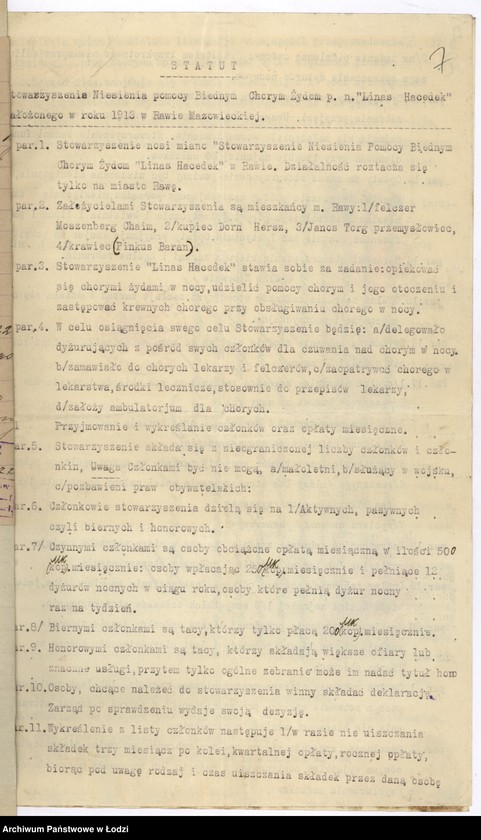 7
STATUT
towarzyszenia Niesienia pomocy Biednym Chorym Żydom p. n."Linas Hacedek"
ałożonego w roku 1913 w Rawie Mazowieckiej.
par.1. Stowarzyszenie nosi miano "Stowarzyszenie Niesienia Pomocy Biednym
Chorym Żydom "Linas Hacedek" w Rawie. Działalność roztacza się
tylko na miasto Rawę.
par.2. Założycielami Stowarzyszenia są mieszkańcy m. Rawy:1/felczer
Moszenberg Chaim, 2/kupiec Dorn Hersz, 3/Janos Torg przemysłowiec,
4/krawiec (Pinkus Baran).
par.3. Stowarzyszenie "Linas Hacedek" stawia sobie za zadanie:opiekować
się chorymi żydami w nocy,udzielić pomocy chorym i jego otoczeniu i
zastępować krewnych chorego przy obsługiwaniu chorego w nocy.
par.4. W celu osiągnięcia swego celu Stowarzyszenie będzie: a/delegowało
dyżurujących z pośród swych członków dla czuwania nad chorym w nocy.
b/zamawiało do chorych lekarzy i felczerów,c/zaopatrywać chorego w
lekarstwa,środki lecznicze,stosownie do przepisów lekarzy,
d/założy ambulatorjum dla chorych.
Przyjmowanie i wykreślanie członków oraz opłaty miesięczne.
ar.5. Stowarzyszenie składa się z nieograniczonej liczby członków i czło-
nkiń, Uwaga Członkami być nie mogą, a/małoletni,b/służący w wojsku,
c/pozbawieni praw obywatelskich:
ar.6. Członkowie stowarzyszenia dzielą się na 1/Aktywnych, pasywnych
czyli biernych i honorowych.
ar.7/ Czynnymi członkami są osoby obciążone opłatą miesięczną w ilości 500
mk kop.miesięcznie: osoby wpłacając 250 mk kop.miesięcznie i pełniące 12
dyżurów nocnych w ciągu roku,osoby które pełnią dyżur nocny
raz na tydzień.
ar.8/ Biernymi członkami są tacy,którzy tylko płacą 200 mk kop.miesięcznie.
ar.9. Honorowymi członkami są tacy, którzy składają większe ofiary lub
znaczne usługi,przytem tylko ogólne zebranie może im nadać tytuł hono
ar.10.Osoby, chcące należeć do stowarzyszenia winny składać deklarację.
Zarząd po sprawdzeniu wydaje swoją decyzję.
ar.11.Wykreślenie z listy członków następuje 1/w razie nie uiszczania
składek trzy miesiące po kolei,kwartalnej opłaty,rocznej opłaty,
biorąc pod uwagę rodzaj i czas uiszczania składek przez daną osobę
Archiwum Państwowe w Łodzi